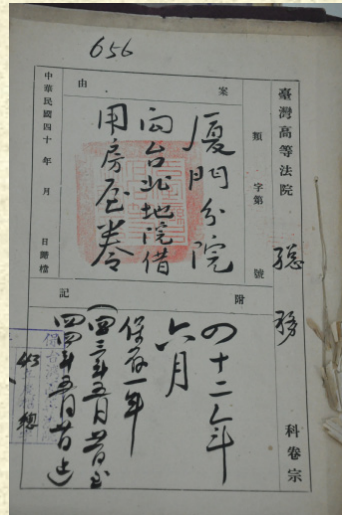 656
臺灣高等法院 總務 科卷宗
類 字第 號
案由
廈門分院
向台北地院借
用房屋卷
中華民國四十 年 月 日歸檔
附記
四十二年
六月
保存一年
(四三年五月廿日至
四四年五月廿日止)
43
總